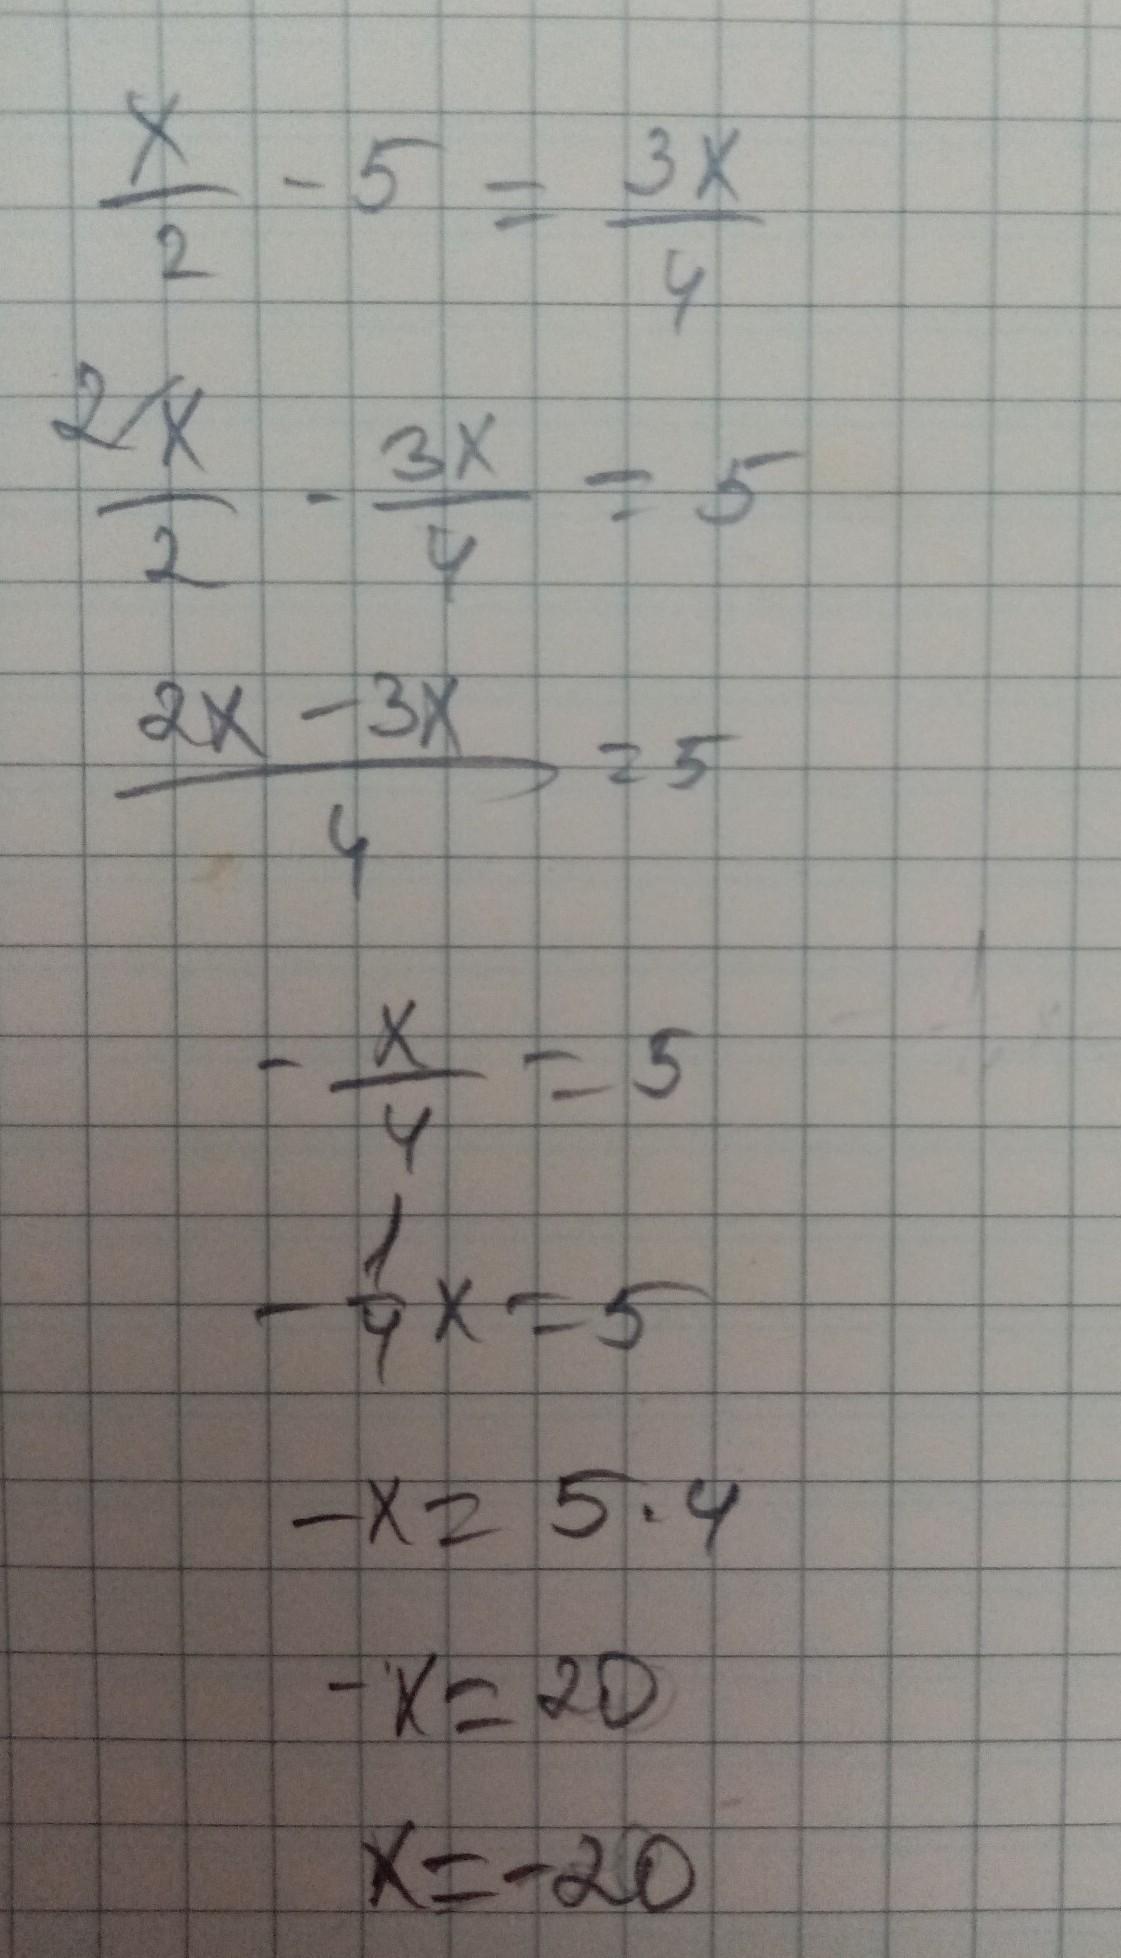 x/2 - 5 = 3x/4
2/ x/2 - 3x/4 = 5
2x - 3x / 4 = 5
- x/4 = 5
- 1/4 x = 5
-x = 5 · 4
-x = 20
x = -20